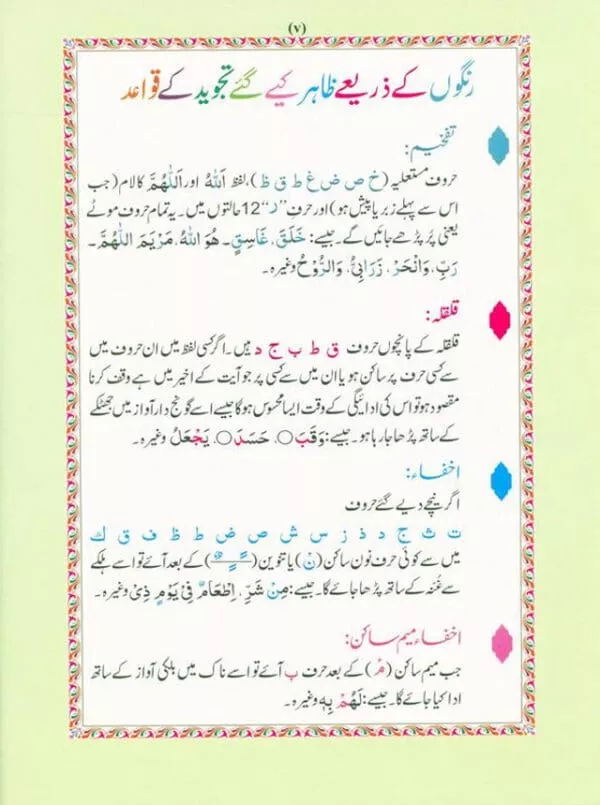 (۷)
رنگوں کے ذریعے ظاہر کیے گئے تجوید کے قواعد
تفخیم:
حروف مستعلیہ (خ ص ض غ ط ق ظ)، لفظ اَللهُ اور اَللّٰهُمَّ کا لام (جب
اس سے پہلے زبر یا پیش ہو) اور حرف ”ر“ 12 حالتوں میں۔ یہ تمام حروف موٹے
یعنی پُر پڑھے جائیں گے۔ جیسے: خَلَقَ، غَاسِقٍ۔ هُوَ اللهُ، مَرْيَمَ اللّٰهُمَّ۔
رَبِّ، وَانْحَرْ، زَرَابِيُّ، وَالرُّوْحُ وغیرہ۔
قلقلہ:
قلقلہ کے پانچوں حروف ق ط ب ج د ہیں۔ اگر کسی لفظ میں ان حروف میں
سے کسی حرف پر سکون ہو یا ان میں سے کسی پر جو آیت کے اخیر میں ہے وقف کرنا
مقصود ہو تو اس کی ادائیگی کے وقت ایسا محسوس ہوگا جیسے اسے گونج دار آواز میں جھٹکے
کے ساتھ پڑھا جا رہا ہو۔ جیسے: وَقَبَ○، حَسَدَ○، يَجْعَلُ وغیرہ۔
اخفاء:
اگر نیچے دیے گئے حروف
ت ث ج د ذ ز س ش ص ض ط ظ ف ق ك
میں سے کوئی حرف نون ساکن (نْ) یا تنوین (ـًـٍـٌ) کے بعد آئے تو اسے ہلکے
سے غُنہ کے ساتھ پڑھا جائے گا۔ جیسے: مِنْ شَرِّ، اِطْعَامٌ فِيْ يَوْمٍ ذِيْ وغیرہ۔
اخفاء میم ساکن:
جب میم ساکن (مْ) کے بعد حرف ب آئے تو اسے ناک میں ہلکی آواز کے ساتھ
ادا کیا جائے گا۔ جیسے: لَهُمْ بِهٖ وغیرہ۔